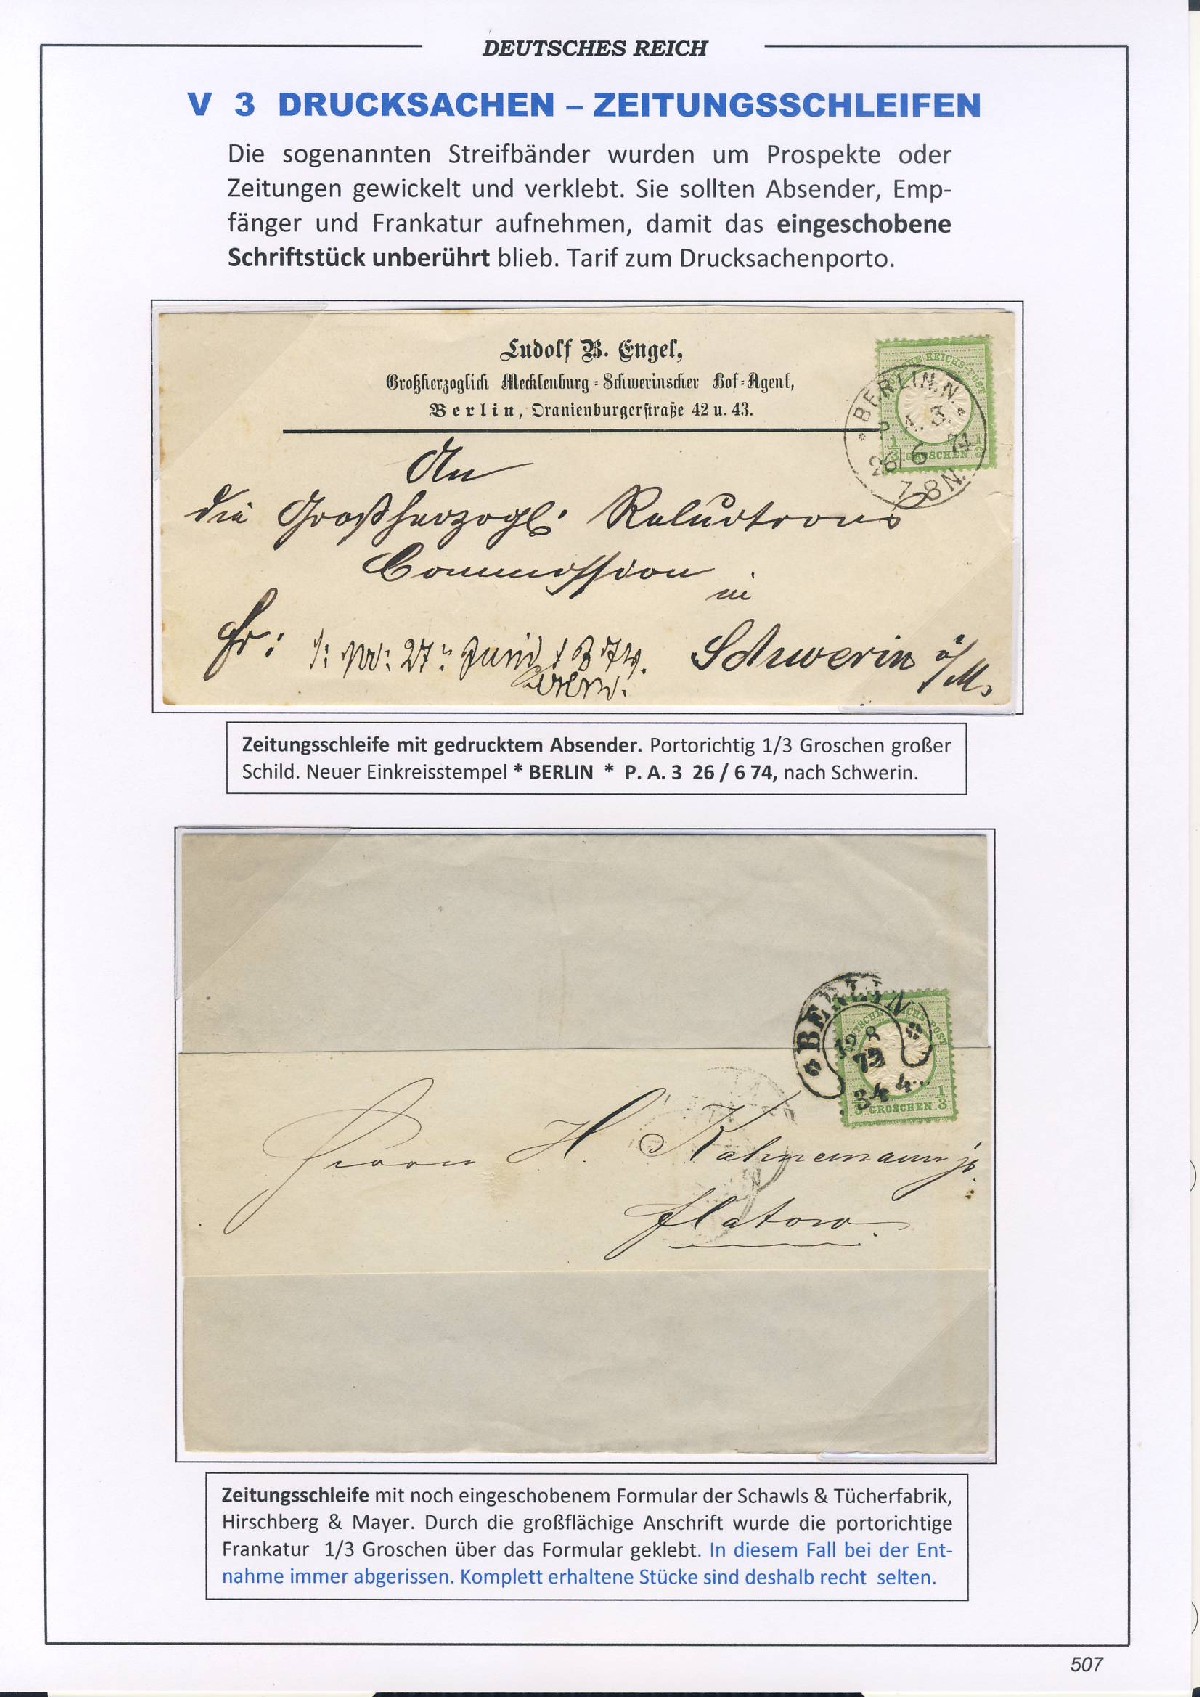 DEUTSCHES REICH
V 3 DRUCKSACHEN – ZEITUNGSSCHLEIFEN
Die sogenannten Streifbänder wurden um Prospekte oder
Zeitungen gewickelt und verklebt. Sie sollten Absender, Emp-
fänger und Frankatur aufnehmen, damit das eingeschobene
Schriftstück unberührt blieb. Tarif zum Drucksachenporto.
Ludolf B. Engel,
Großherzoglich Mecklenburg-Schwerinscher Hof-Agent,
Berlin, Oranienburgerstraße 42 u. 43.
BERLIN.N.
P. A. 3.
26/6 74
7-8N.
1/3 GROSCHEN 1/3
An
die Großherzogl: Reluitions
Commission
in
Fr: 27n Juni 1874.
Schwerin i/M.
Zeitungsschleife mit gedrucktem Absender. Portorichtig 1/3 Groschen großer
Schild. Neuer Einkreisstempel * BERLIN * P. A. 3 26 / 6 74, nach Schwerin.
BERLIN
12 8
72
3-4
GROSCHEN 1/3
Herrn H. Kahnemann jr.
Flatow.
Zeitungsschleife mit noch eingeschobenem Formular der Schawls & Tücherfabrik,
Hirschberg & Mayer. Durch die großflächige Anschrift wurde die portorichtige
Frankatur 1/3 Groschen über das Formular geklebt. In diesem Fall bei der Ent-
nahme immer abgerissen. Komplett erhaltene Stücke sind deshalb recht selten.
507